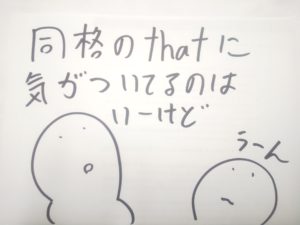 同格のthatに
気がついてるのは
いーけど
うーん